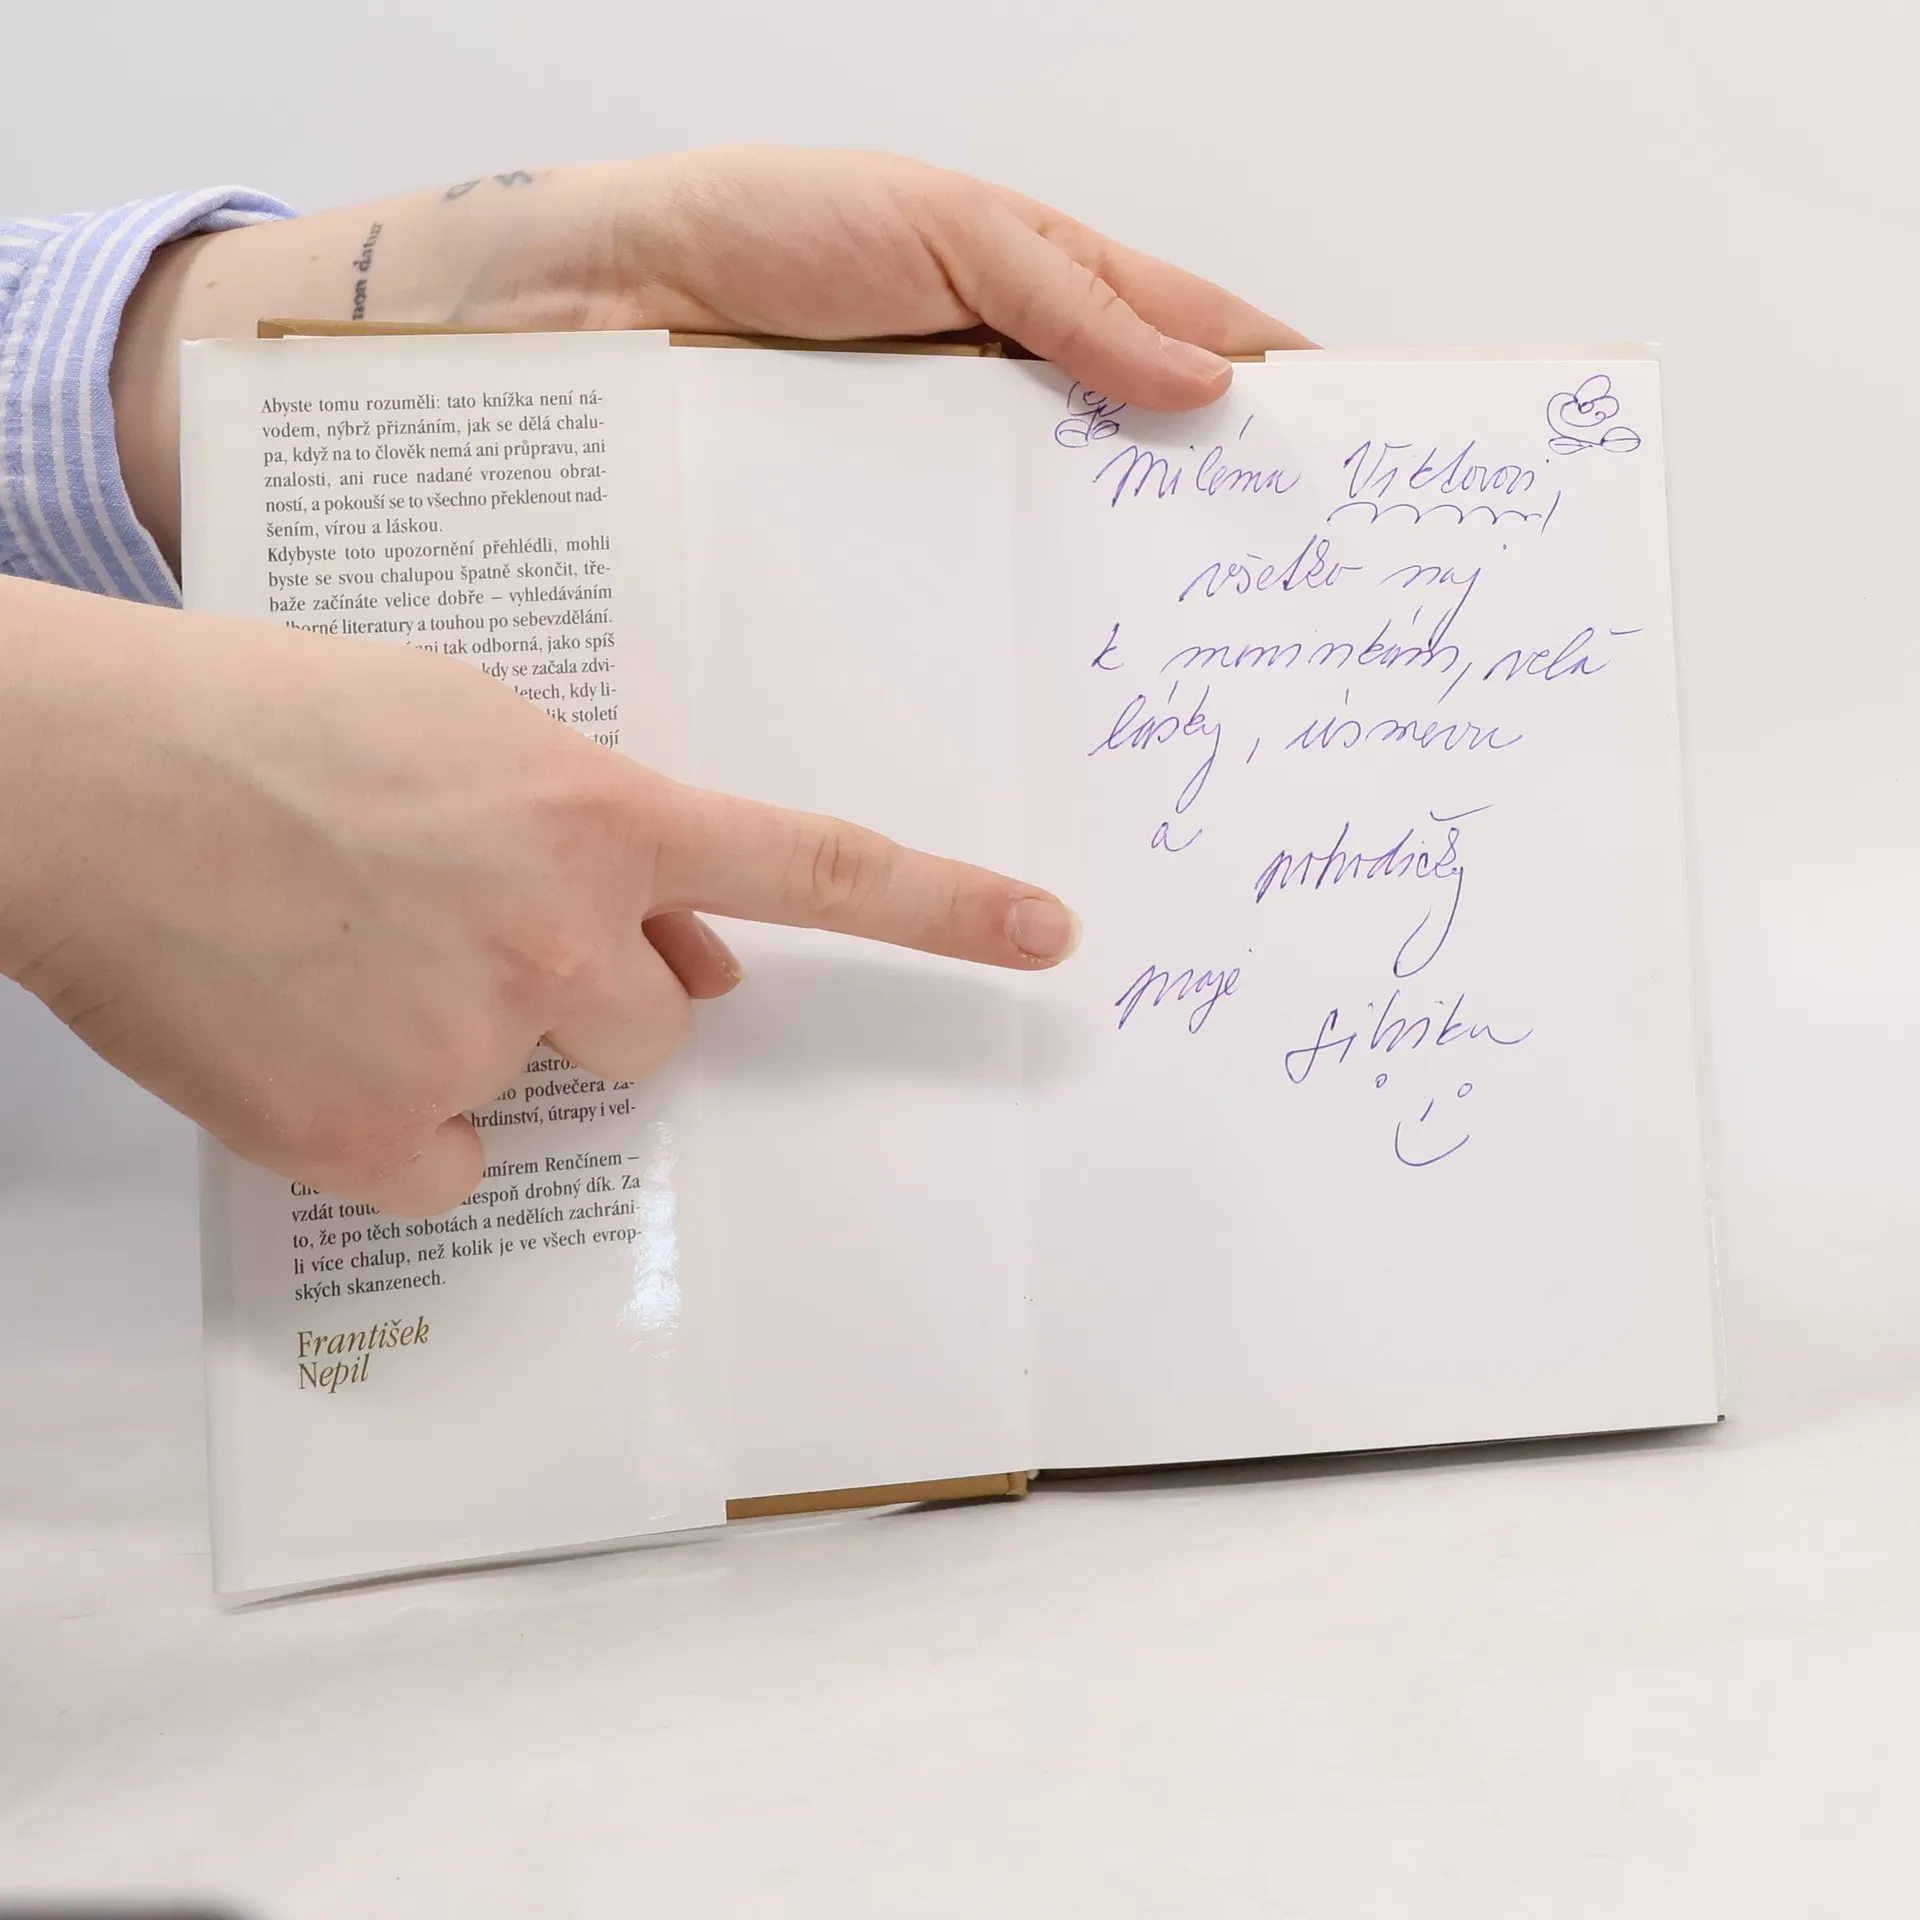 non datur
Abyste tomu rozuměli: tato knížka není ná-
vodem, nýbrž přiznáním, jak se dělá chalu-
pa, když na to člověk nemá ani průpravu, ani
znalosti, ani ruce nadané vrozenou obrat-
ností, a pokouší se to všechno překlenout nad-
šením, vírou a láskou.
Kdybyste toto upozornění přehlédli, mohli
byste se svou chalupou špatně skončit, tře-
baže začínáte velice dobře – vyhledáváním
borné literatury a touhou po sebevzdělání.
ani tak odborná, jako spíš
kdy se začala zdvi-
letech, kdy li-
lik století
tojí
podvečera za-
hrdinství, útrapy i vel-
mírem Renčínem –
vzdát touto espoň drobný dík. Za
to, že po těch sobotách a nedělích zachráni-
li více chalup, než kolik je ve všech evrop-
ských skanzenech.
František
Nepil
Milému Viktorovi,
všetko naj
k meninkám, velă
lásky, úsmevu
a pohodičky
praje Silvika